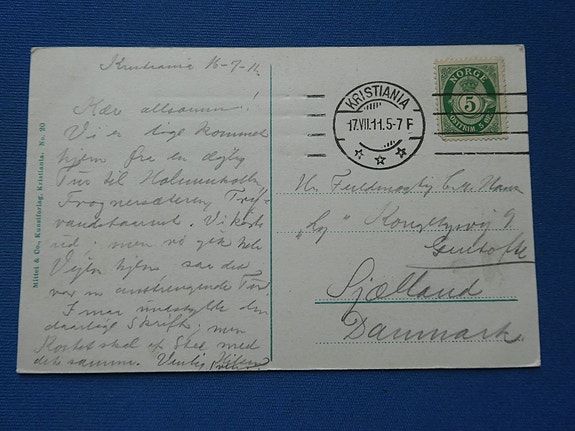 Kristiania 16-7-11.
Kære allesamm!
Vi er lige kommet
hjem fra en dejlig
Tur til Holmenkollen
Frognersæteren, Tryv
vandstaarnet. Vi
ud, men vi gik hele
Vejen hjem saa det
var en anstrengende Tur.
I maa undskylde den
daarlige Skrift, men
Kortet skal af Sted med
det samme. Venlig Hilsen
Mittet & Co., Kunstforlag, Kristiania. No. 90
KRISTIANIA
17.VII.11.5-7 F
NORGE
5
POSTFRIM. 5 ØRE
Hr. Fuldmægtig C. Hansen
Kongelysvej 9
Gentofte
Sjælland
Danmark.